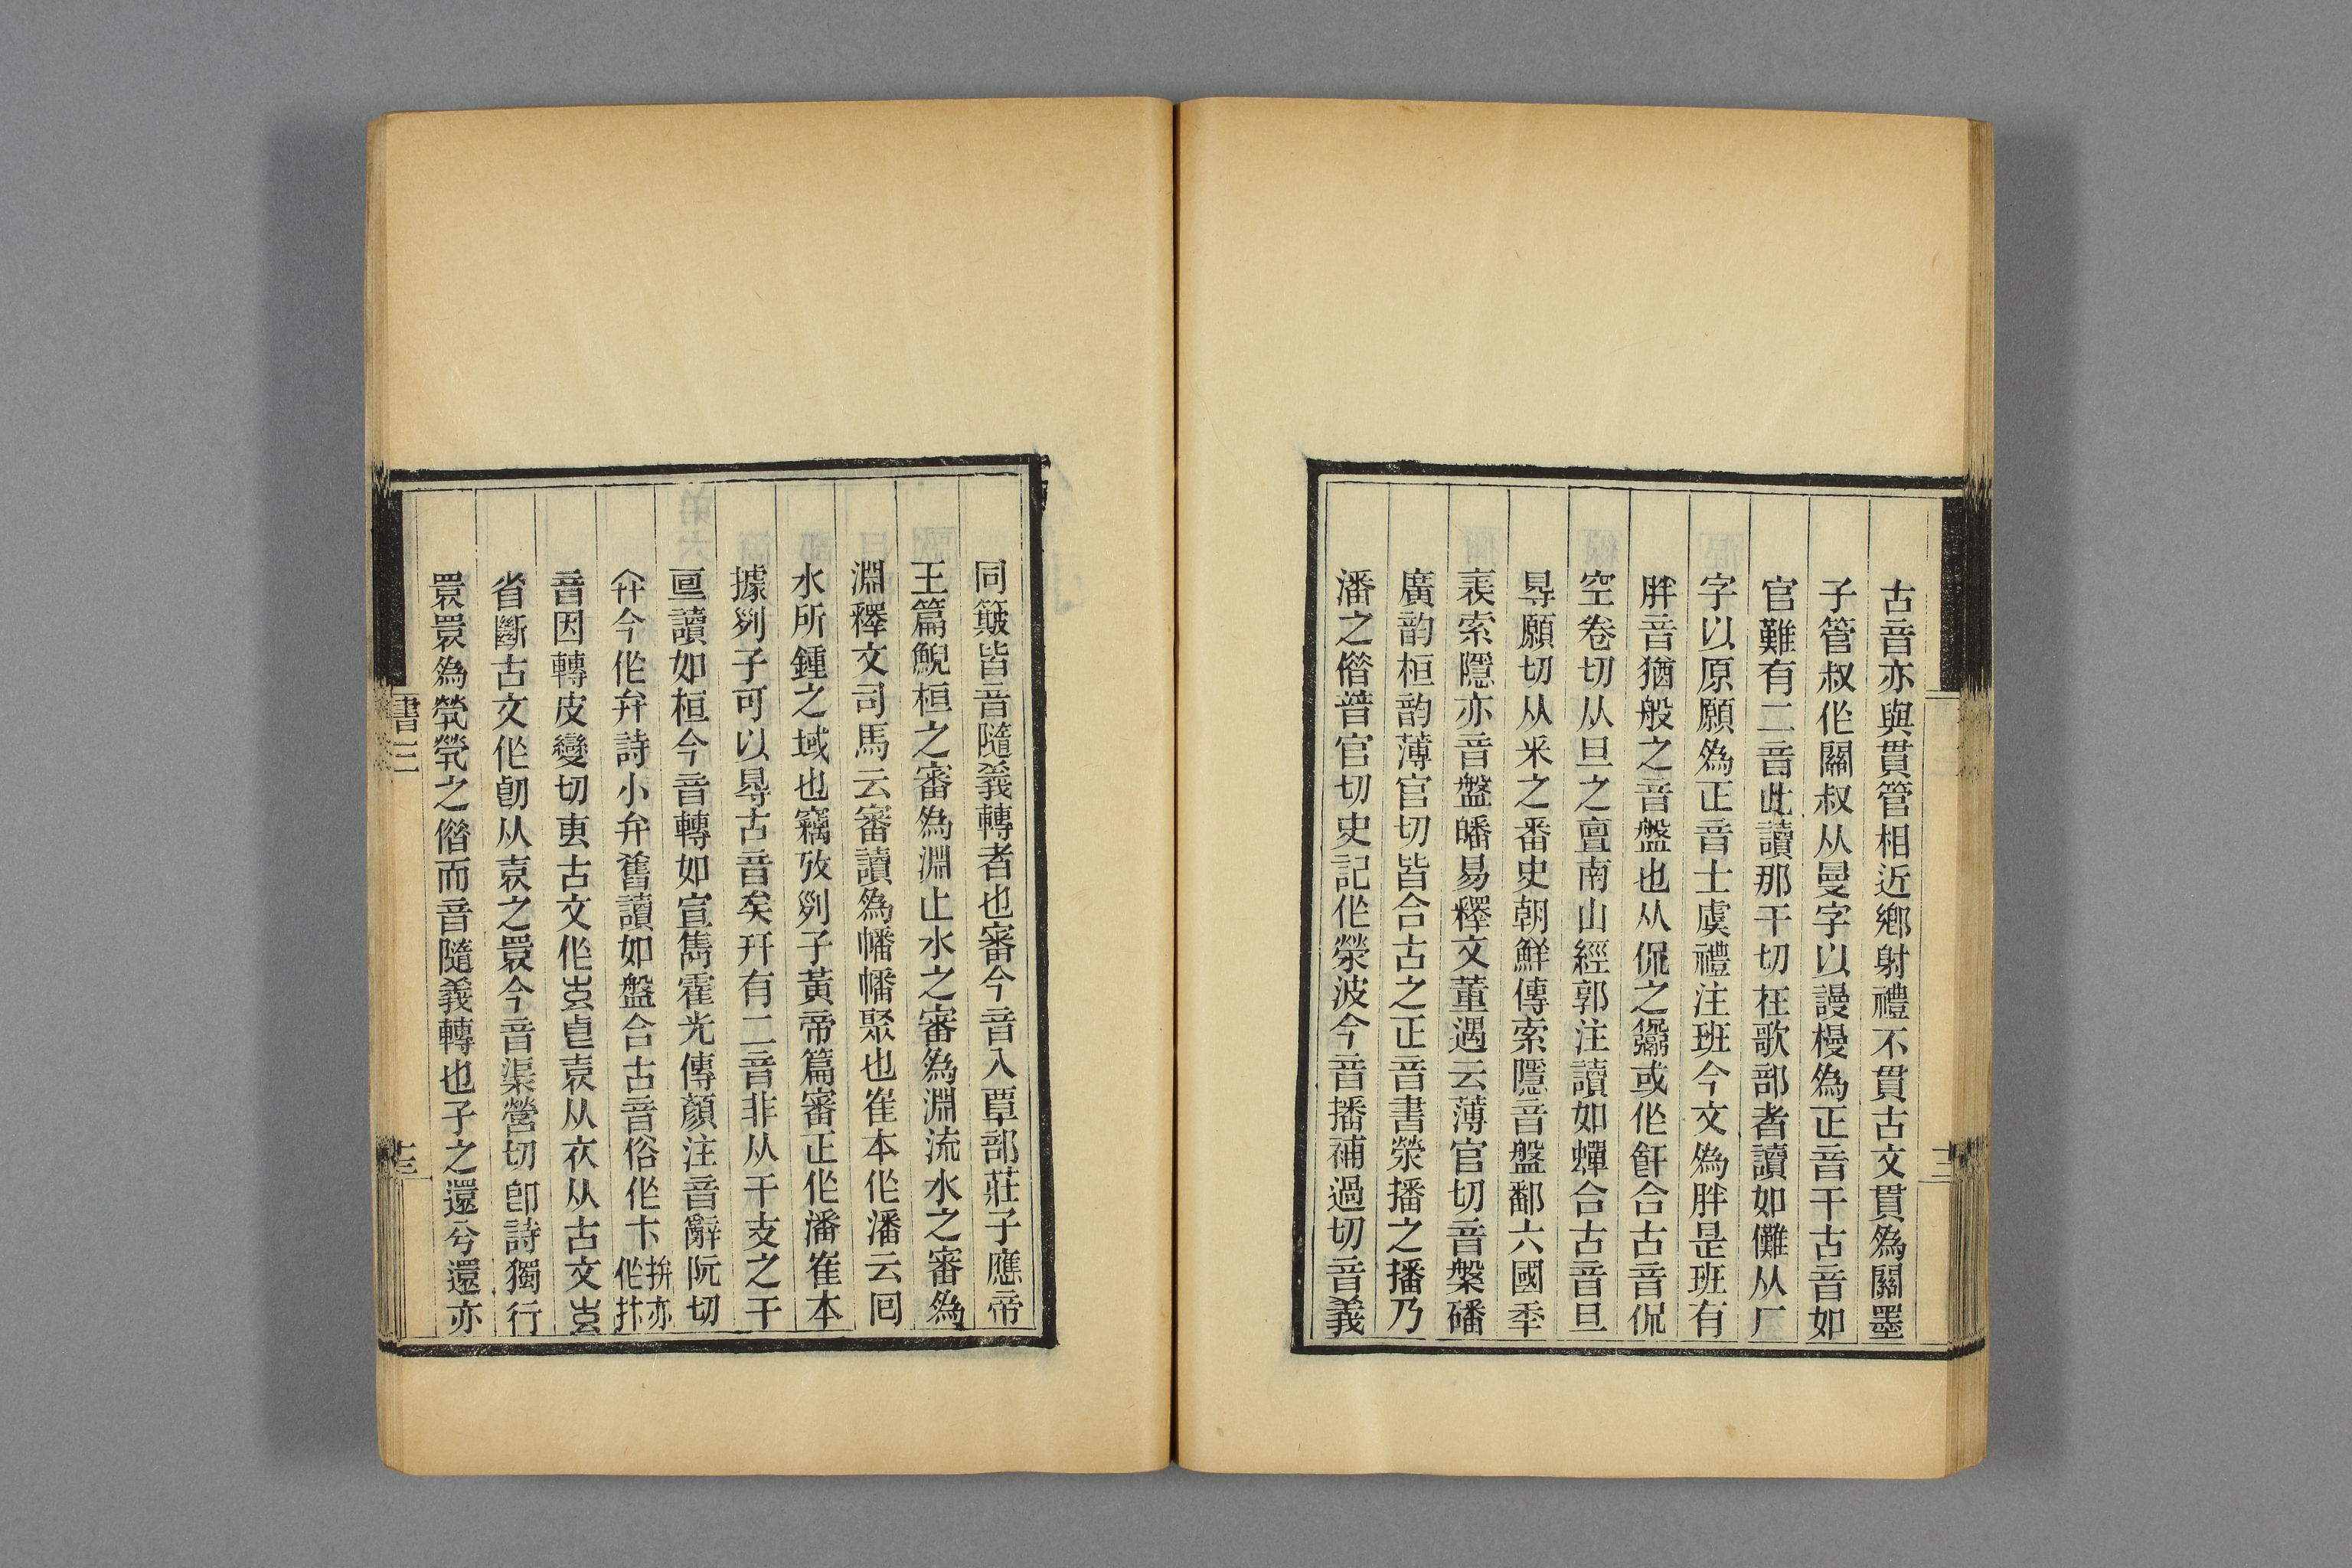 古音亦與貫管相近鄉射禮不貫古文貫爲關墨
子管叔作關叔从曼字以謾槾爲正音干古音如
官難有二音此讀那干切在歌部者讀如儺从厂
字以原願爲正音士虞禮注班今文爲胖是班有
胖音猶般之音盤也从侃之鬻或作飦合古音侃
空卷切从旦之亶南山經郭注讀如蟬合古音旦
㝵願切从釆之番史朝鮮傳索隱音盤鄱六國年
表索隱亦音盤皤易釋文董遇云薄官切音槃磻
廣韵桓韵薄官切皆合古之正音書滎播之播乃
潘之偕普官切史記作滎波今音播補過切音義
同簸皆音隨義轉者也審今音入覃部莊子應帝
王篇鯢桓之審爲淵止水之審爲淵流水之審爲
淵釋文司馬云審讀爲幡幡聚也崔本作潘云回
水所鍾之域也竊攷列子黃帝篇審正作潘崔本
據列子可以㝵古音矣幵有二音非从干支之干
亘讀如桓今音轉如宣雋霍光傳顏注音辭阮切
㝸今作弁詩小弁舊讀如盤合古音俗作卞拚亦作抃
音因轉皮變切叀古文作𠧟皀袁从衣从古文𠧟
省斷古文作㫁从袁之睘今音渠營切卽詩獨行
睘睘爲煢煢之偕而音隨義轉也子之還兮還亦
書三
十三